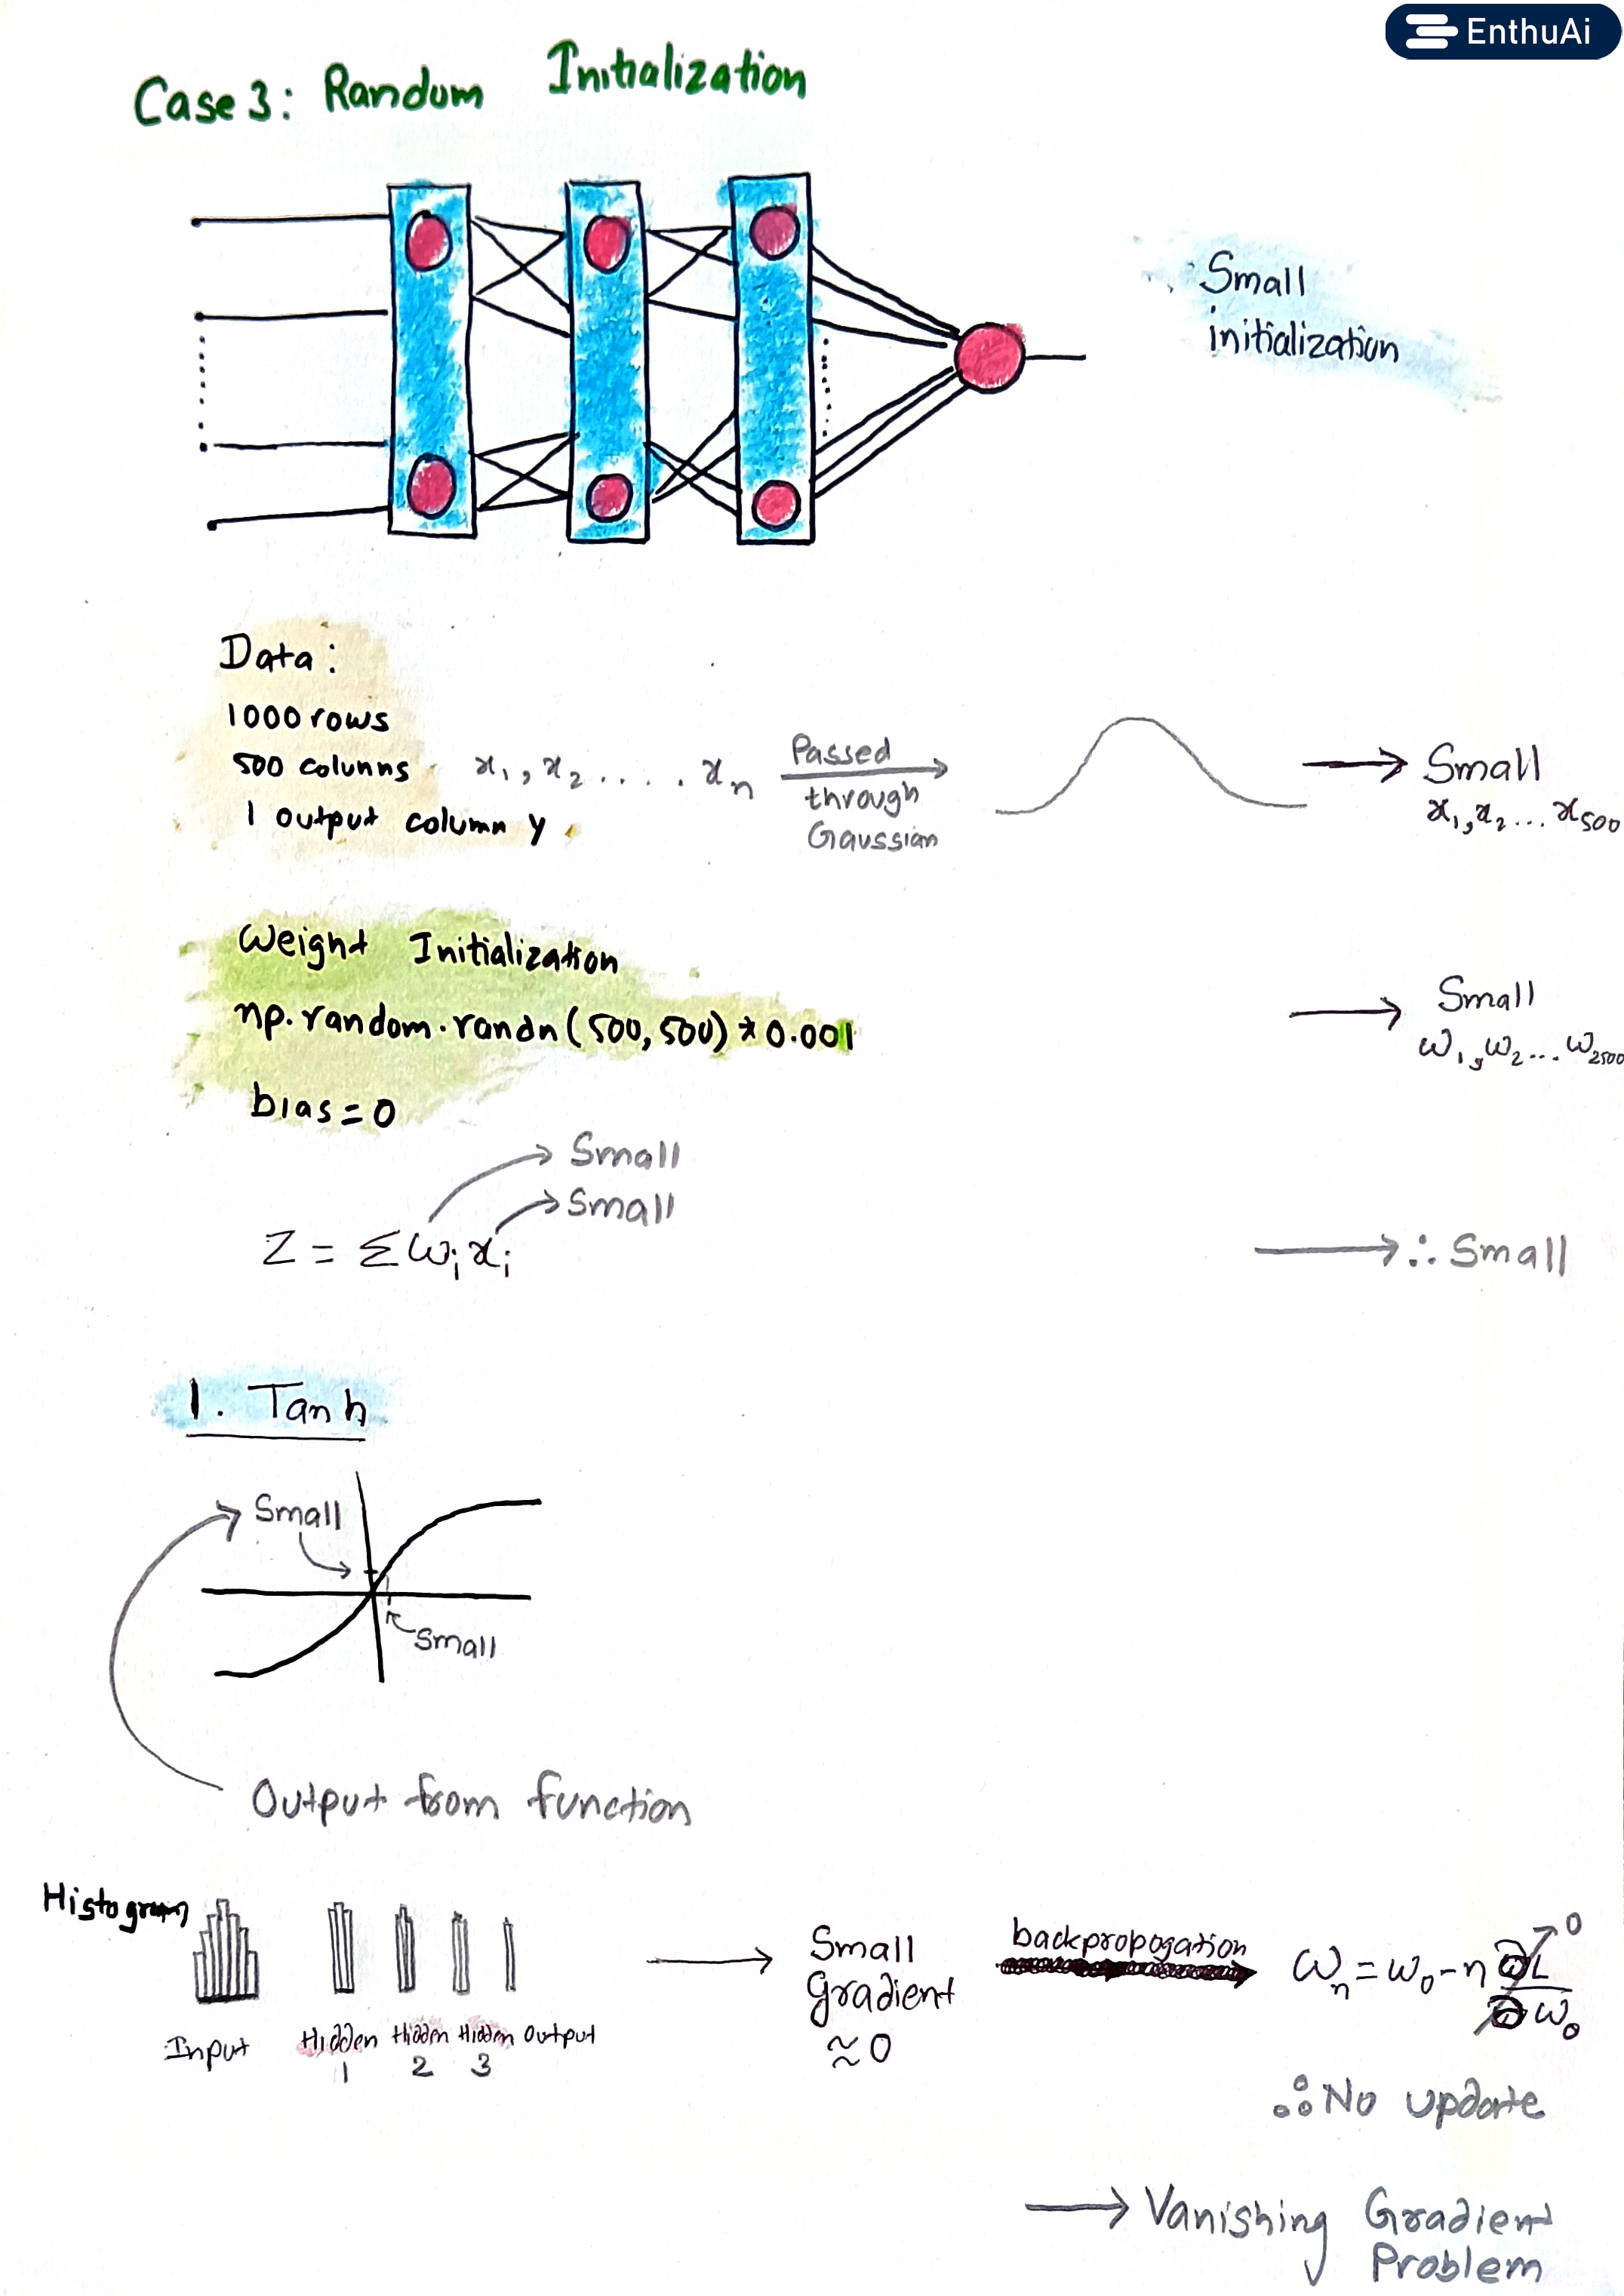 EnthuAi
Case 3: Random Initialization
Small
initialization
Data:
1000 rows
500 columns
1 output column y
x₁, x₂ .... xₙ
Passed
through
Gaussian
Small
x₁, x₂ ... x₅₀₀
Weight Initialization
np.random.randn(500,500) * 0.001
bias = 0
Small
ω₁, ω₂ ... ω₂₅₀₀
Small
Small
Z = Σ ωᵢ xᵢ
∴ Small
1. Tanh
Small
Small
Output from function
Histogram
Input
Hidden 1
Hidden 2
Hidden 3
Output
Small
gradient
≈ 0
backpropogation
ωₙ = ω₀ - η ∂L/∂ω₀
0
∴ No update
Vanishing Gradient
Problem